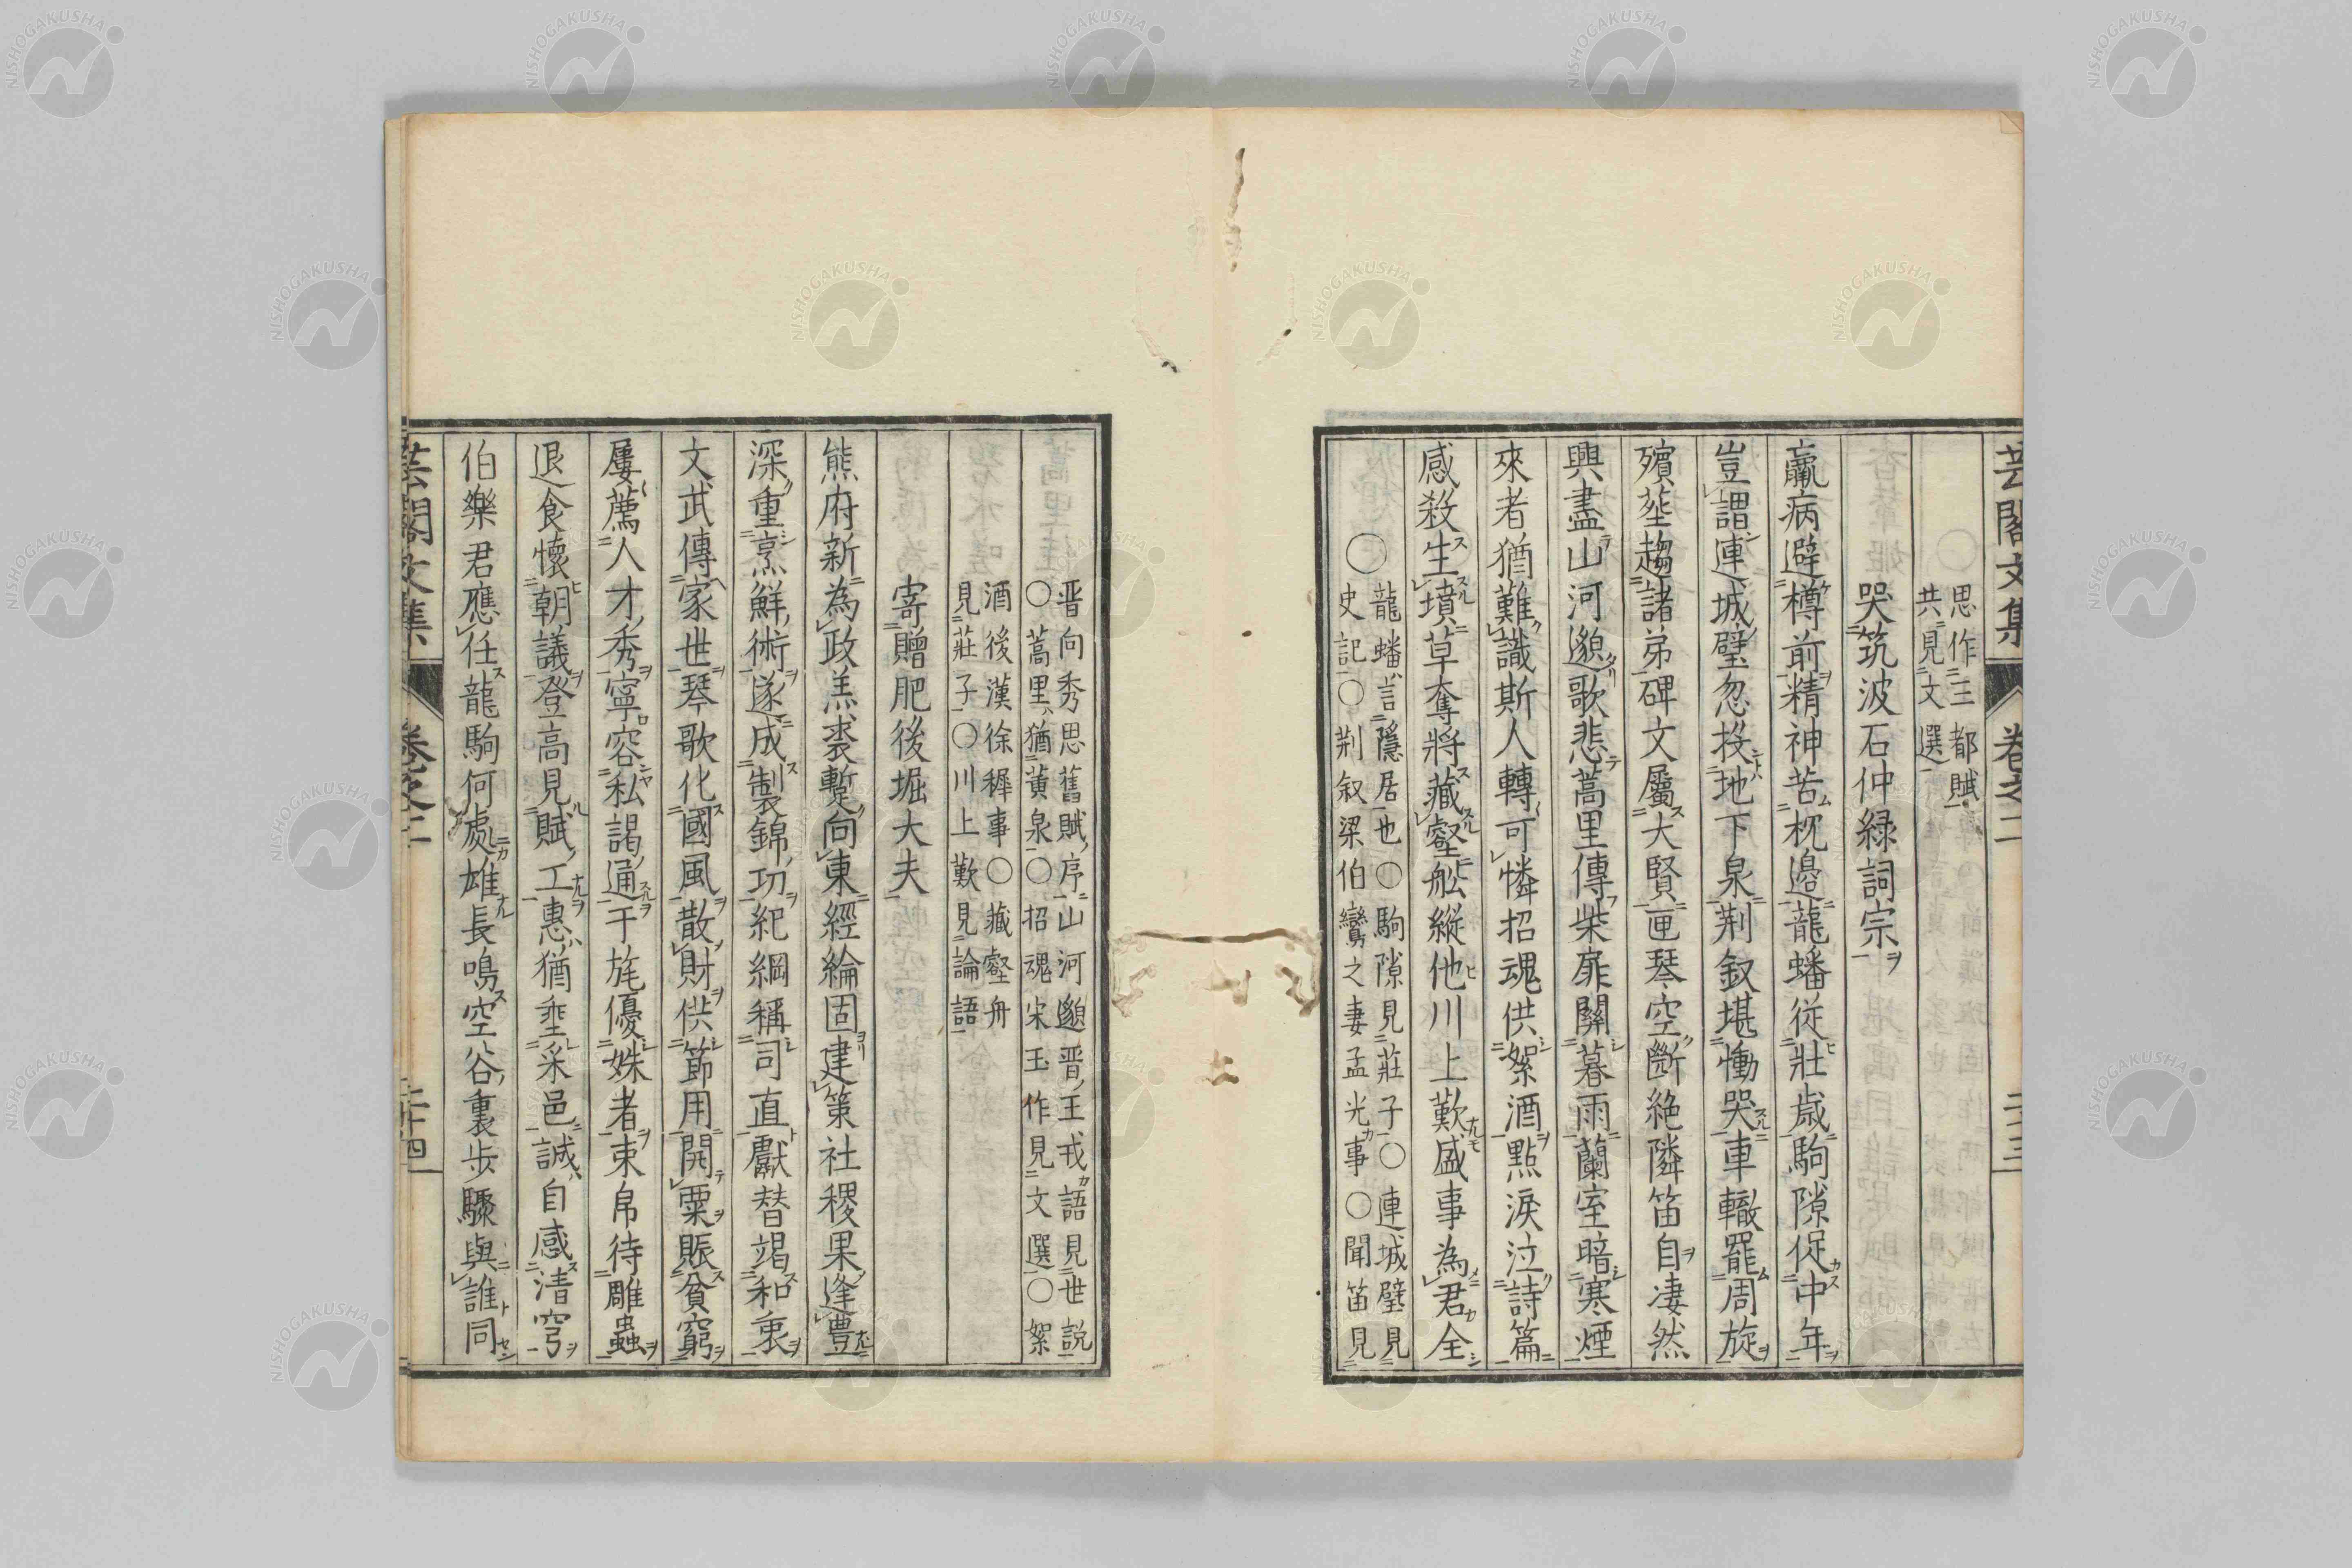 芸閣文集 卷之二 二十三
○思作三都賦
共見文選
哭筑波石仲緑詞宗
羸病避樽前精神苦枕邊龍蟠從壯歳駒隙促中年
豈謂連城璧忽投地下泉荆釵堪慟哭車轍罷周旋
殯葬趨諸弟碑文屬大賢匣琴空斷絶隣笛自凄然
興盡山河邈歌悲蒿里傳柴扉關暮雨蘭室暗寒煙
來者猶難識斯人轉可憐招魂供絮酒點淚泣詩篇
感殺生墳草奪將藏壑舩縱他川上歎盛事為君全
○龍蟠言隱居也○駒隙見莊子○連城璧見
史記○荆釵梁伯鸞之妻孟光事○聞笛見
晋向秀思舊賦序山河邈晋王戎語見世説
○蒿里猶黄泉○招魂宋玉作見文選○絮
酒後漢徐穉事○藏壑舟
見莊子○川上歎見論語
寄贈肥後堀大夫
熊府新為政羔裘蹔向東經綸固建策社稷果逢豊
深重烹鮮術遂成製錦功紀綱稱司直獻替竭和衷
文武傳家世琴歌化國風散財供節用開粟賑貧窮
屢薦人才秀寧容私謁通干旄優姝者束帛待雕蟲
退食懷朝議登高見賦工惠猶垂采邑誠自感清穹
伯樂君應任龍駒何處雄長鳴空谷裏歩驟與誰同
芸閣文集 卷之二 二十四